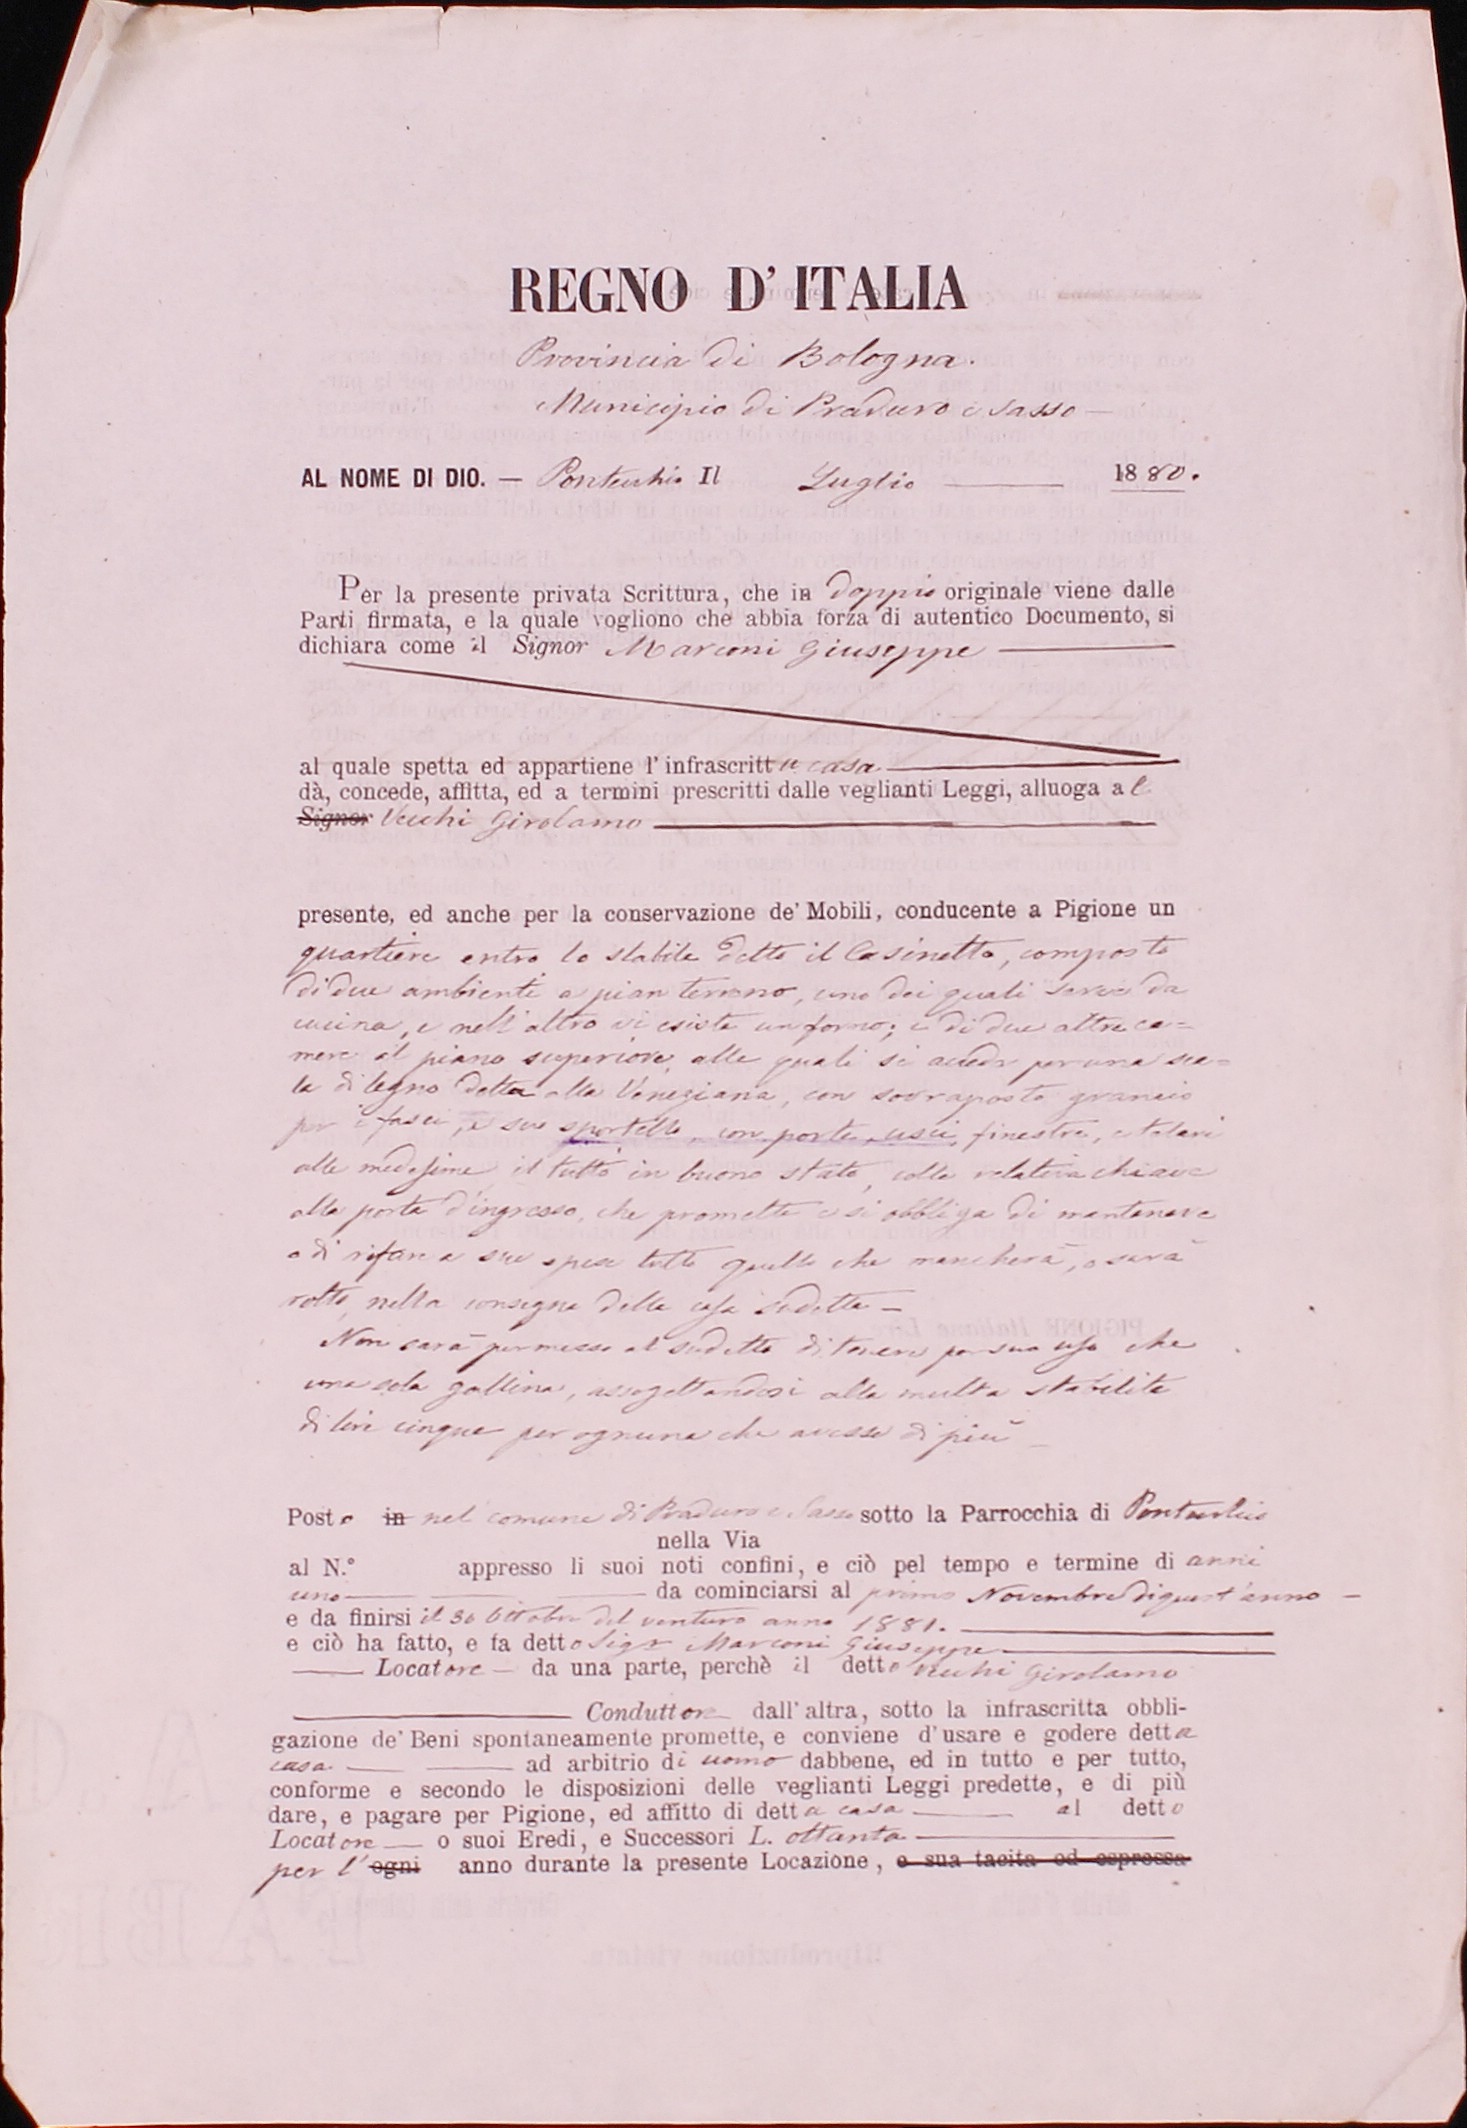 REGNO D'ITALIA
Provincia di Bologna.
Municipio di Praduro e Sasso —
AL NOME DI DIO. — Pontecchio Il Luglio 1880.
Per la presente privata Scrittura, che in doppio originale viene dalle
Parti firmata, e la quale vogliono che abbia forza di autentico Documento, si
dichiara come il Signor Marconi Giuseppe
al quale spetta ed appartiene l'infrascritta casa
dà, concede, affitta, ed a termini prescritti dalle veglianti Leggi, alluoga al
Signor Vecchi Girolamo
presente, ed anche per la conservazione de' Mobili, conducente a Pigione un
quartiere entro lo stabile detto il Casinetto, composto
di due ambienti a pian terreno, uno dei quali serve da
cucina, e nell'altro vi esiste un forno; e di due altre ca=
mere al piano superiore, alle quali si accede per una sca=
la di legno detta alla Veneziana, con sovraposto granaio
per i fasci, e suo sportello, con porte, usci, finestre, e telari
alle medesime il tutto in buono stato, colla relativa chiave
alla porta d'ingresso, che promette e si obbliga di mantenere
o di rifare a sue spese tutto quello che mancherà, o sarà
rotto, nella consegna della casa sudetta —
Non sarà permesso al sudetto di tenere per suo uso che
una sola gallina, assogettandosi alla multa stabilita
di lire cinque per ognuna che avesse di più —
Posto in nel comune di Praduro e Sasso sotto la Parrocchia di Pontecchio
nella Via
al N.° appresso li suoi noti confini, e ciò pel tempo e termine di anni
uno da cominciarsi al primo Novembre di quest'anno —
e da finirsi il 30 Ottobre del venturo anno 1881.
e ciò ha fatto, e fa detto Sigr Marconi Giuseppe
Locatore — da una parte, perchè il detto Vecchi Girolamo
Conduttore dall'altra, sotto la infrascritta obbli-
gazione de' Beni spontaneamente promette, e conviene d'usare e godere detta
casa ad arbitrio di uomo dabbene, ed in tutto e per tutto,
conforme e secondo le disposizioni delle veglianti Leggi predette, e di più
dare, e pagare per Pigione, ed affitto di detta casa al detto
Locatore — o suoi Eredi, e Successori L. ottanta
per l' ogni anno durante la presente Locazione, e sua tacita od espressa